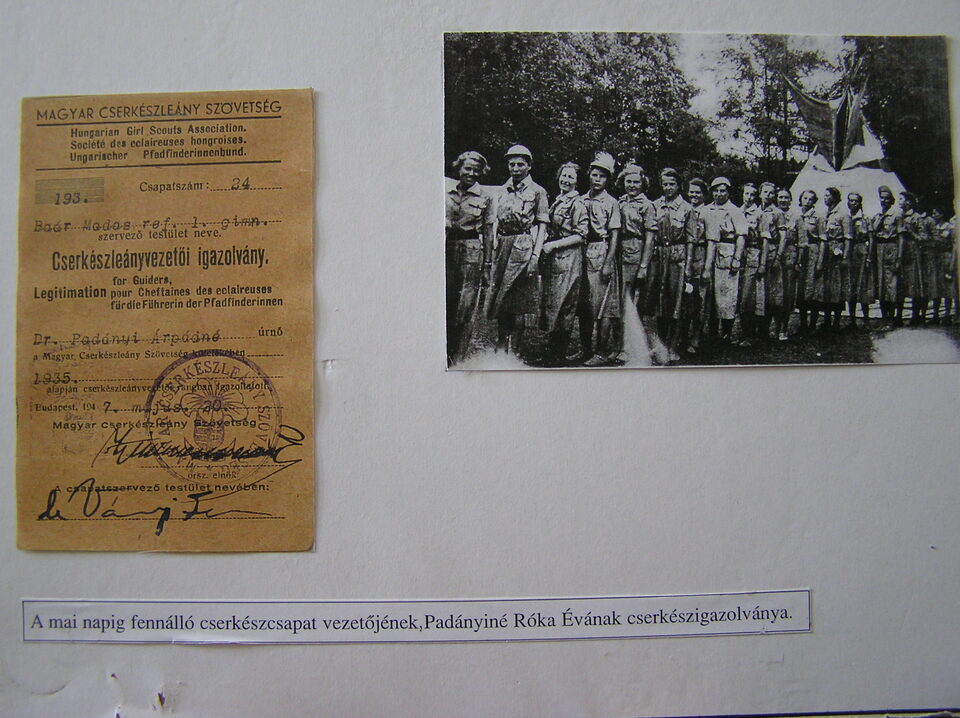 MAGYAR CSERKÉSZLEÁNY SZÖVETSÉG
Hungarian Girl Scouts Association.
Société des eclaireuses hongroises.
Ungarischer Pfadfinderinnenbund.
193.
Csapatszám: 34.
Baár Madas ref. l. gimn.
szervező testület neve.
Cserkészleányvezetői igazolvány.
for Guiders,
Legitimation pour Cheftaines des eclaireuses
für die Führerin der Pfadfinderinnen
Dr. Padányi Árpádné úrnő
a Magyar Cserkészleány Szövetség kötelékében
1935.
alapján cserkészleányvezetői rangban igazoltatott.
Budapest, 194 7. május. 20.
Magyar Cserkészleány Szövetség
orsz. elnök
A csapatszervező testület nevében:
A mai napig fennálló cserkészcsapat vezetőjének,Padányiné Róka Évának cserkészigazolványa.